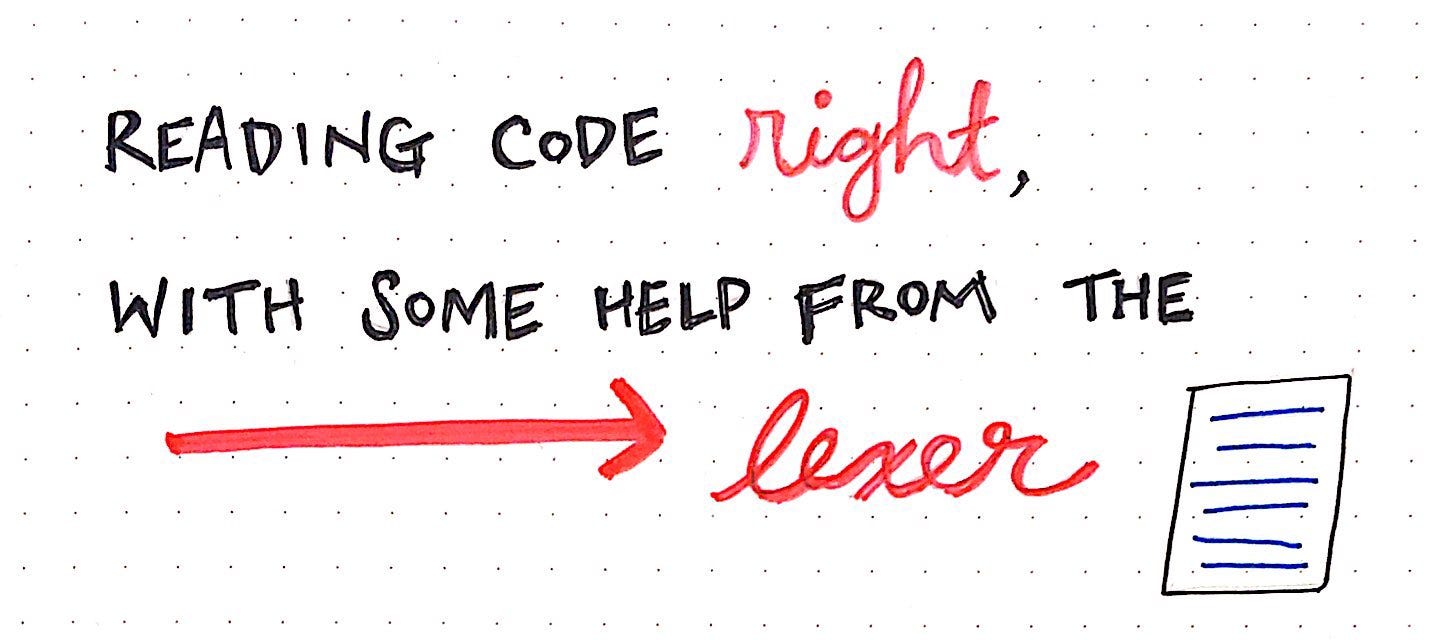 READING CODE right,
WITH SOME HELP FROM THE
lexer